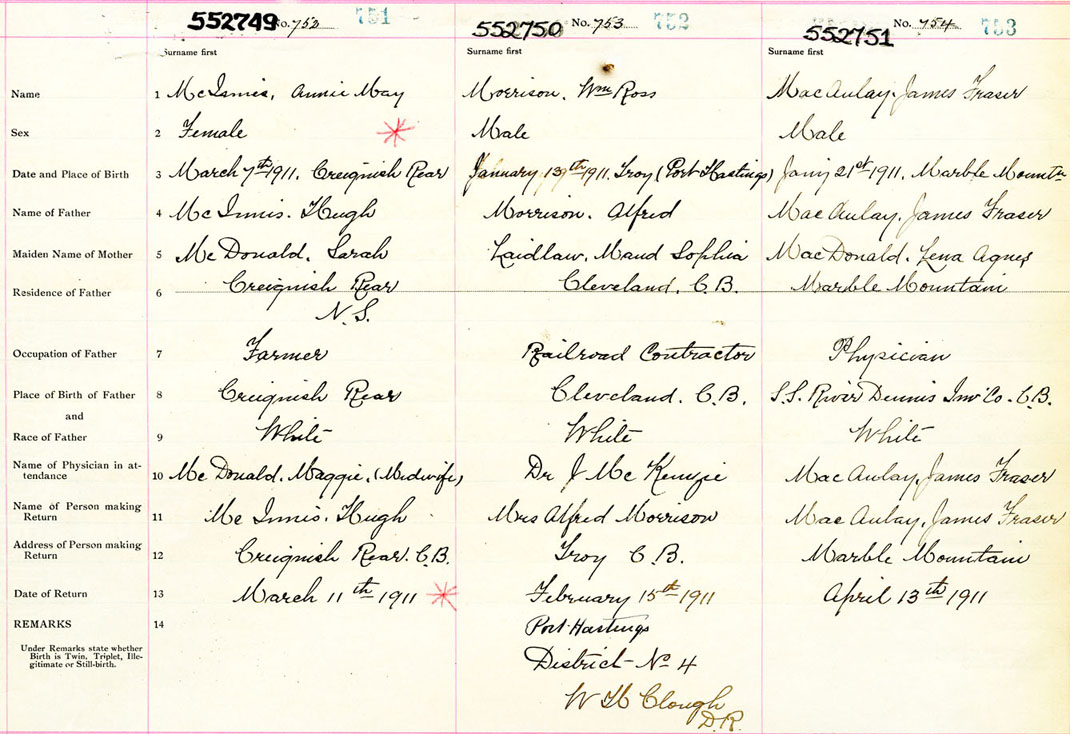 552749 No. 752 751 552750 No. 753 752 552751 No. 754 753
Surname first Surname first Surname first
Name 1 McInnis, Annie May Morrison, Wm Ross MacAulay, James Fraser
Sex 2 Female Male Male
Date and Place of Birth 3 March 7th 1911, Creignish Rear January 13th 1911, Troy (Port Hastings) Jany 21st 1911, Marble Mountn
Name of Father 4 McInnis, Hugh Morrison, Alfred MacAulay, James Fraser
Maiden Name of Mother 5 McDonald, Sarah Laidlaw, Maud Sophia MacDonald, Lena Agnes
Residence of Father 6 Creignish Rear Cleveland, C.B. Marble Mountain
N.S.
Occupation of Father 7 Farmer Railroad Contractor Physician
Place of Birth of Father 8 Creignish Rear Cleveland, C.B. S.S. River Dennis Inv Co. C.B.
and
Race of Father 9 White White White
Name of Physician in at-
tendance 10 McDonald, Maggie, (Midwife) Dr J McKenzie MacAulay, James Fraser
Name of Person making
Return 11 McInnis, Hugh Mrs Alfred Morrison MacAulay, James Fraser
Address of Person making
Return 12 Creignish Rear, C.B. Troy C.B. Marble Mountain
Date of Return 13 March 11th 1911 February 15th 1911 April 13th 1911
REMARKS 14 Port Hastings
Under Remarks state whether
Birth is Twin, Triplet, Ille-
gitimate or Still-birth.
District No 4
W H Clough
D.R.